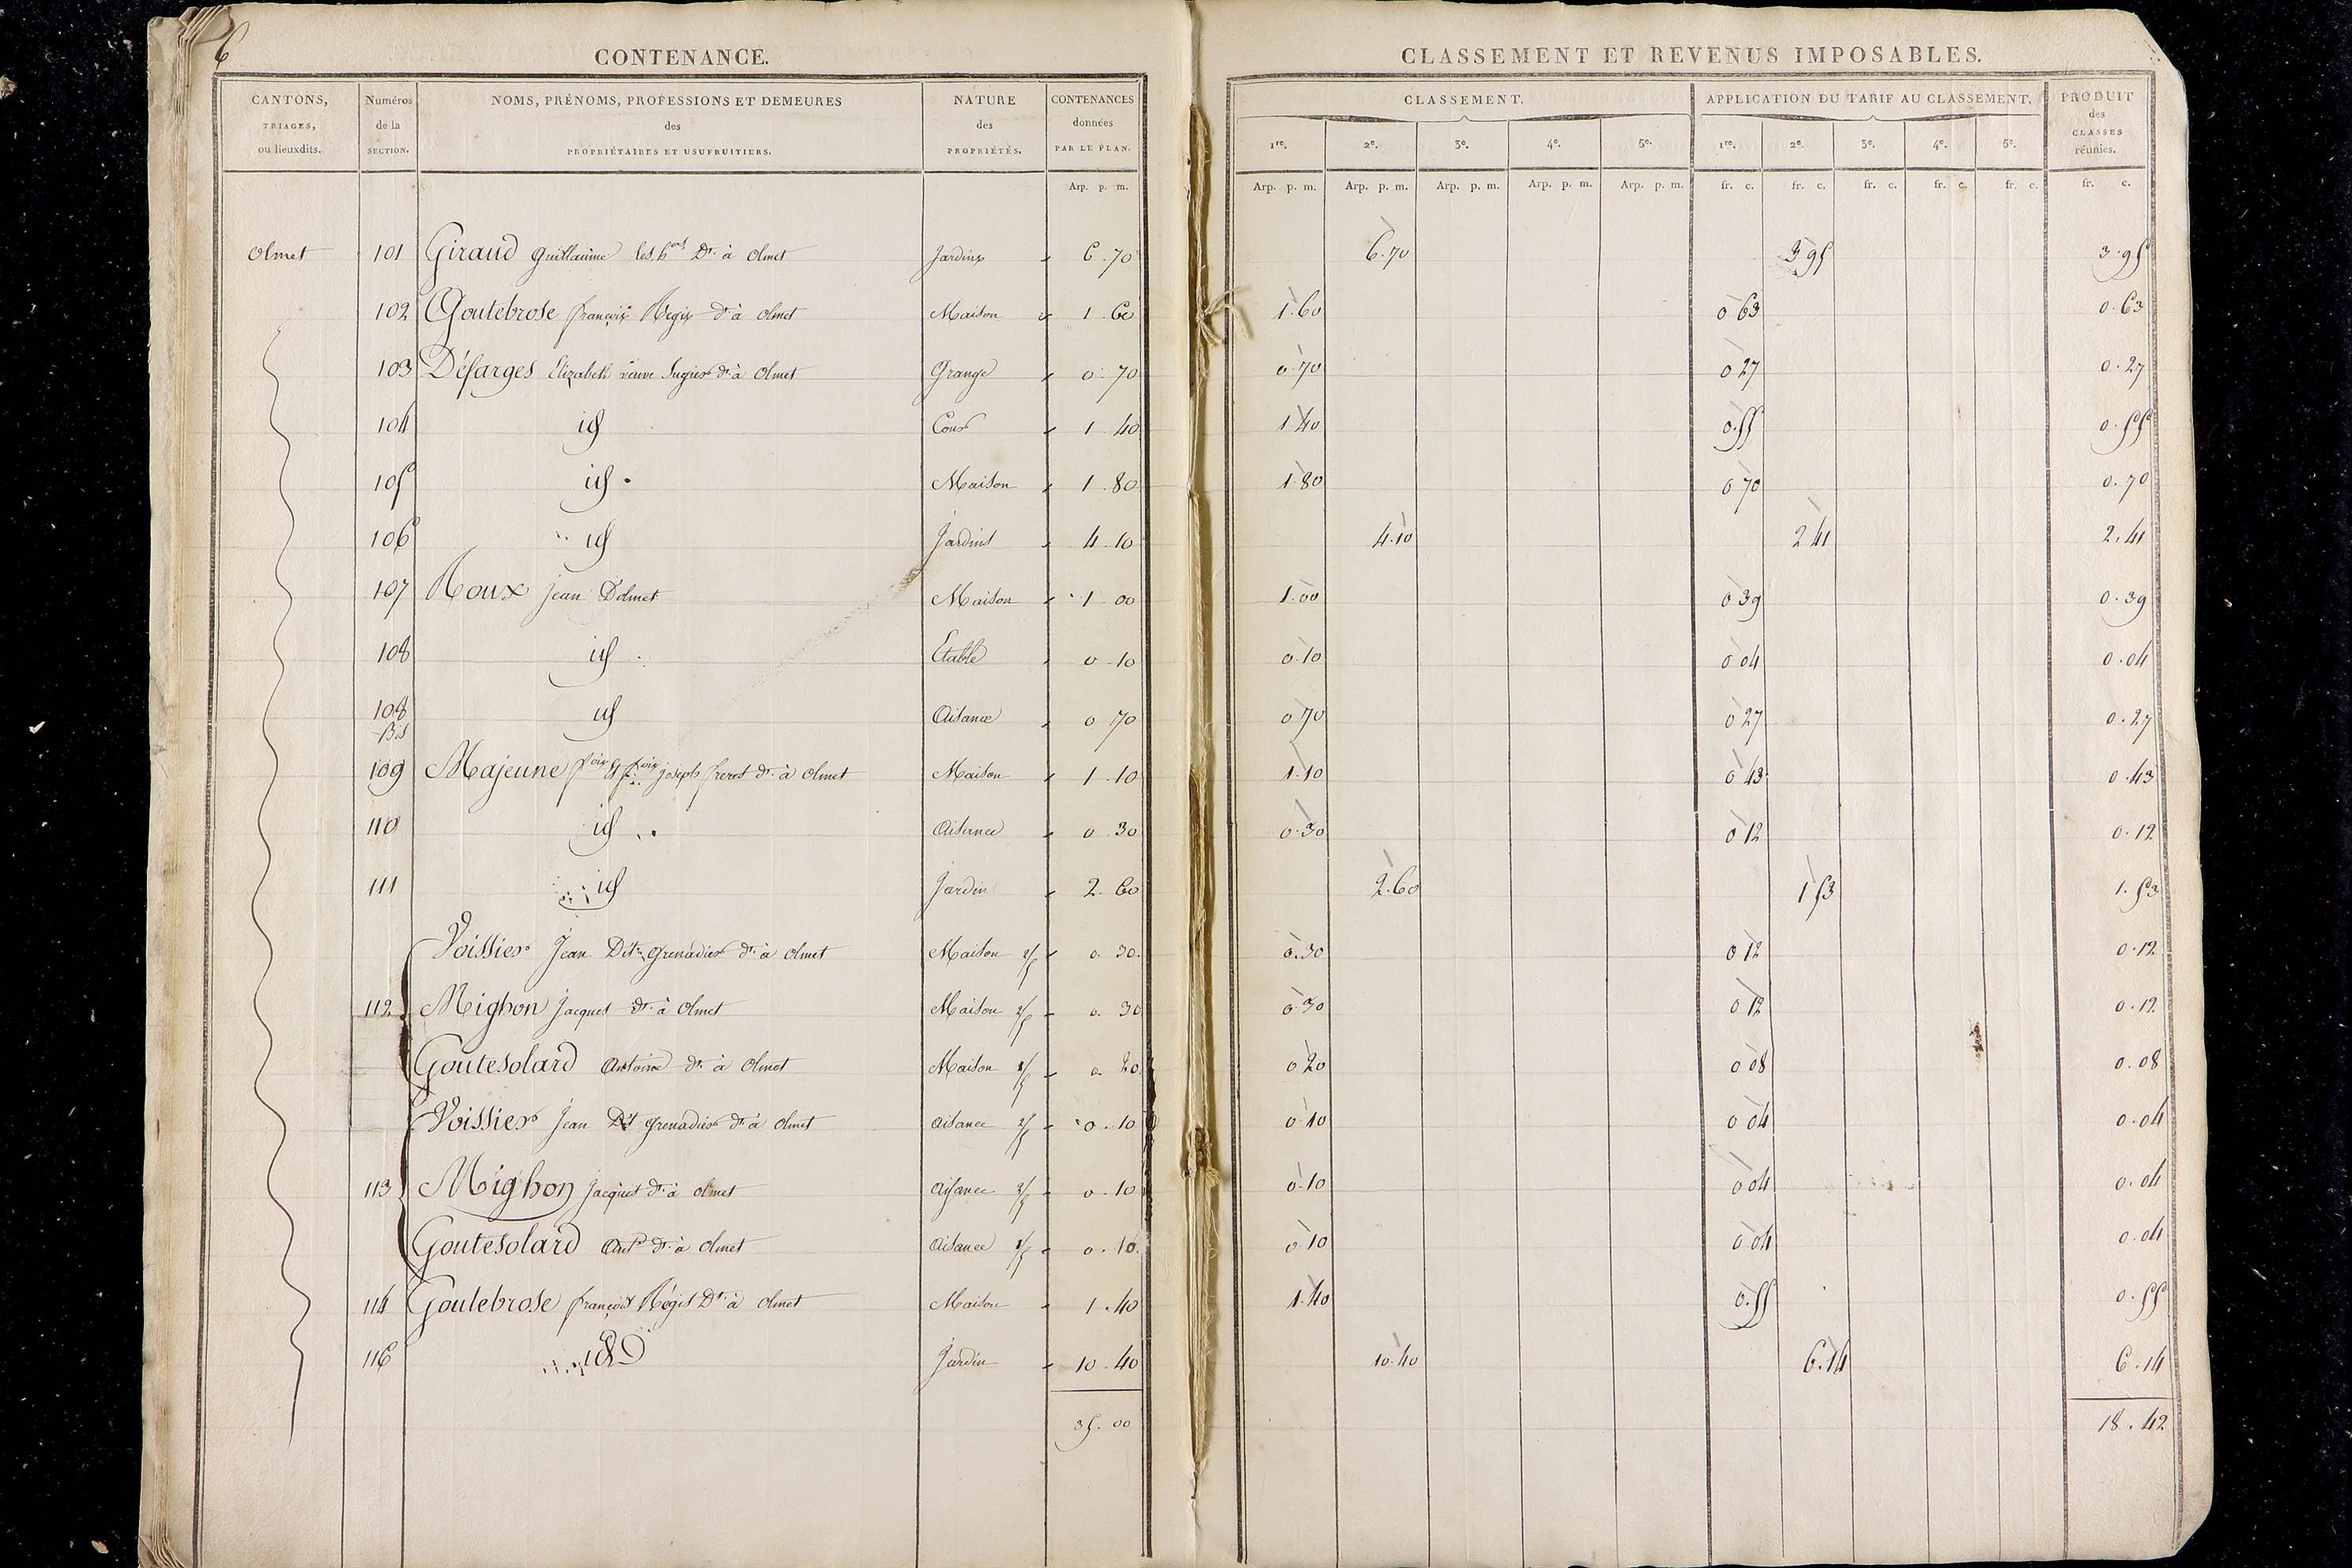 6
CONTENANCE.
CLASSEMENT ET REVENUS IMPOSABLES.
CANTONS, TRIAGES, ou lieuxdits.
Numéros de la SECTION.
NOMS, PRÉNOMS, PROFESSIONS ET DEMEURES des PROPRIÉTAIRES ET USUFRUITIERS.
NATURE des PROPRIÉTÉS.
CONTENANCES données PAR LE PLAN.
CLASSEMENT.
APPLICATION DU TARIF AU CLASSEMENT.
PRODUIT des CLASSES réunies.
1re. 2e. 3e. 4e. 5e. 1re. 2e. 3e. 4e. 5e.
Arp. p. m. Arp. p. m. Arp. p. m. Arp. p. m. Arp. p. m. Arp. p. m. fr. c. fr. c. fr. c. fr. c. fr. c. fr. c.
Olmet 101 Giraud Guillaume les hers Dt. à Olmet Jardins 6.70 6.70 3 95 3.95
102 Goutebrose françois Regis dt. à Olmet Maison 1.60 1.60 0 63 0.63
103 Défarges Elizabeth veuve Sugier dt. à Olmet Grange 0.70 0.70 0 27 0.27
104 id Cour 1.40 1.40 0.55 0.55
105 id Maison 1.80 1.80 0 70 0.70
106 id Jardins 4.10 4.10 2 41 2.41
107 Roux jean D'olmet Maison 1.00 1.00 0 39 0.39
108 id Etable 0.10 0.10 0 04 0.04
108 Bis id Aisance 0 70 0 70 0 27 0.27
109 Majeune fçois & fçois joseph freres dt. à Olmet Maison 1.10 1.10 0 43 0.43
110 id Aisance 0.30 0.30 0 12 0.12
111 id Jardin 2.60 2.60 1 53 1.53
Voissier Jean Dit Grenadier dt. à Olmet Maison 2/5 0.30 0.30 0 12 0.12
112 Mighon Jacques dt. à Olmet Maison 2/5 0.30 0.30 0 12 0.12
Goutesolard Antoine dt. à Olmet Maison 1/5 0.20 0 20 0 08 0.08
Voissier Jean Dit Grenadier dt. à Olmet Aisance 2/5 0.10 0 10 0 04 0.04
113 Mighon Jacques dt. à Olmet Aisance 2/5 0.10 0.10 0 04 0.04
Goutesolard Ant. dt. à Olmet Aisance 1/5 0.10 0 10 0 04 0.04
114 Goutebrose françois Régis Dt. à Olmet Maison 1.40 1.40 0.55 0.55
116 id Jardin 10.40 10.40 6.14 6.14
35.00 18.42